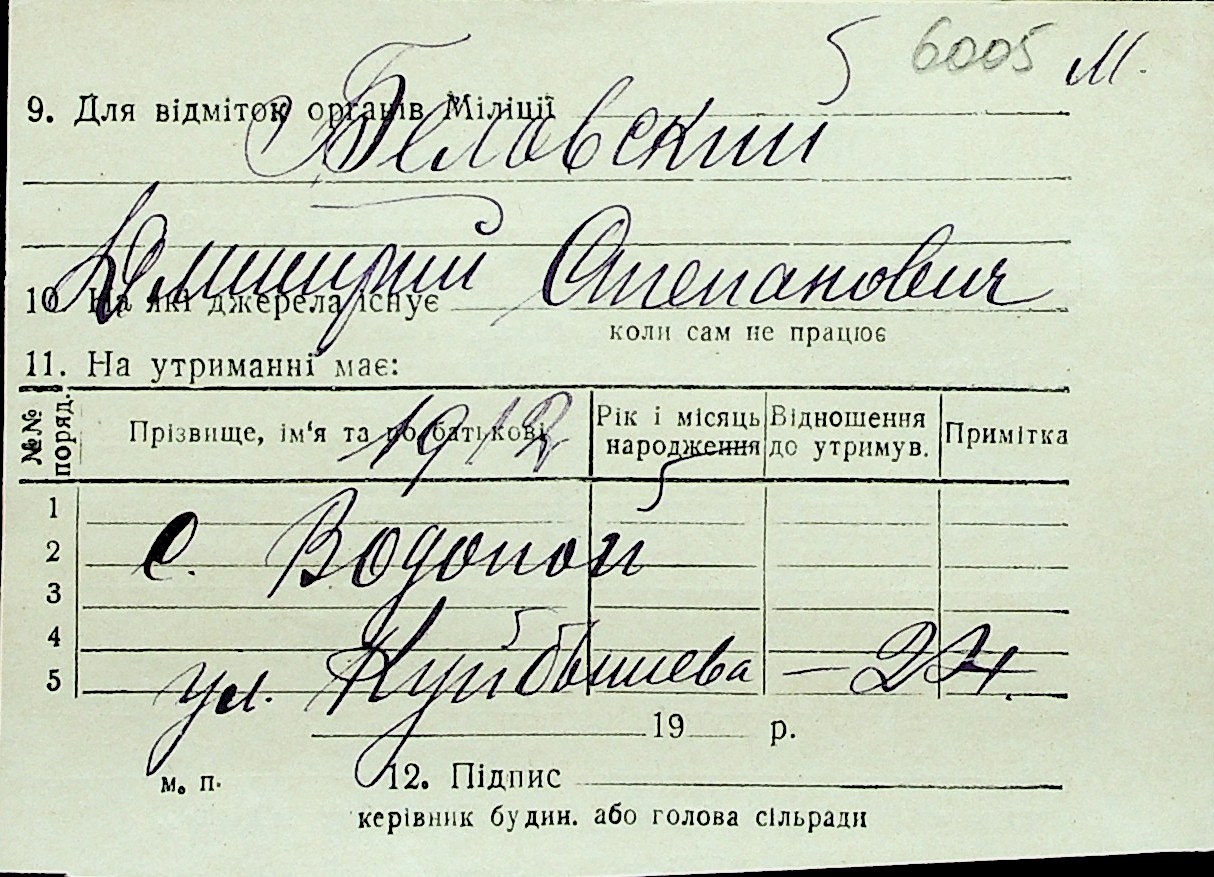 6005 М.
9. Для відміток органів Міліції
Беловский
Дмитрий Степанович
10. На які джерела існує
коли сам не працює
11. На утриманні має:
№№ поряд. Прізвище, ім'я та по батькові Рік і місяць народження Відношення до утримув. Примітка
1912
1
с. Водопой
2
3
4
ул. Куйбышева – 24.
5
19 р.
м. п. 12. Підпис
керівник будин. або голова сільради